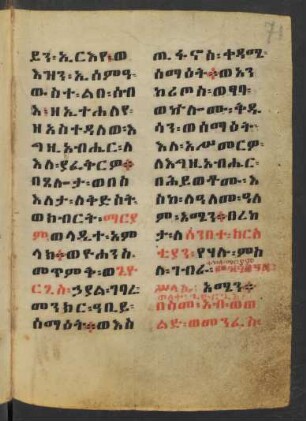 ይን፡ኢርእየ፡ወ
እዝን፡ኢሰምዓ፡
ውስተ፡ልበ፡ሰብ
እ፡ዘኢተሐለየ፡
ዘአስተዳለወ፡እ
ግዚአብሔር፡ለ
እለ፡ያፈቅርዎ።
በጸሎታ፡ወበስ
እለታ፡ለቅድስት
ወክብርት፡ማርያ
ም፡ወላዲተ፡አም
ላክ፡ወዮሐንስ፡
መጥምቅ፡ወጊዮ
ርጊስ፡ኃያል፡ገባሬ፡
መንክር፡ዓቢይ፡
ሰማዕት፡ወእስ
ጢፋኖስ፡ቀዳሜ
ሰማዕት፡ወአን
ቆርጦስ፡ወፃባ፡
ወኵሎሙ፡ቅዱ
ሳን፡ወሰማዕት
እለ፡አሥመርዎ፡
ለእግዚአብሔር፡
በሕይወቶሙ፡እ
ስከ፡ለዓለመ፡ዓለ
ም፡አሜን፡በረከ
ታ፡ለሰንበተ፡ክርስ
ቲያን፡የሃሉ፡ምስ
ለ፡ገብራ፡
አሜን።
በስመ፡አብ፡ወወ
ልድ፡ወመንፈስ፡